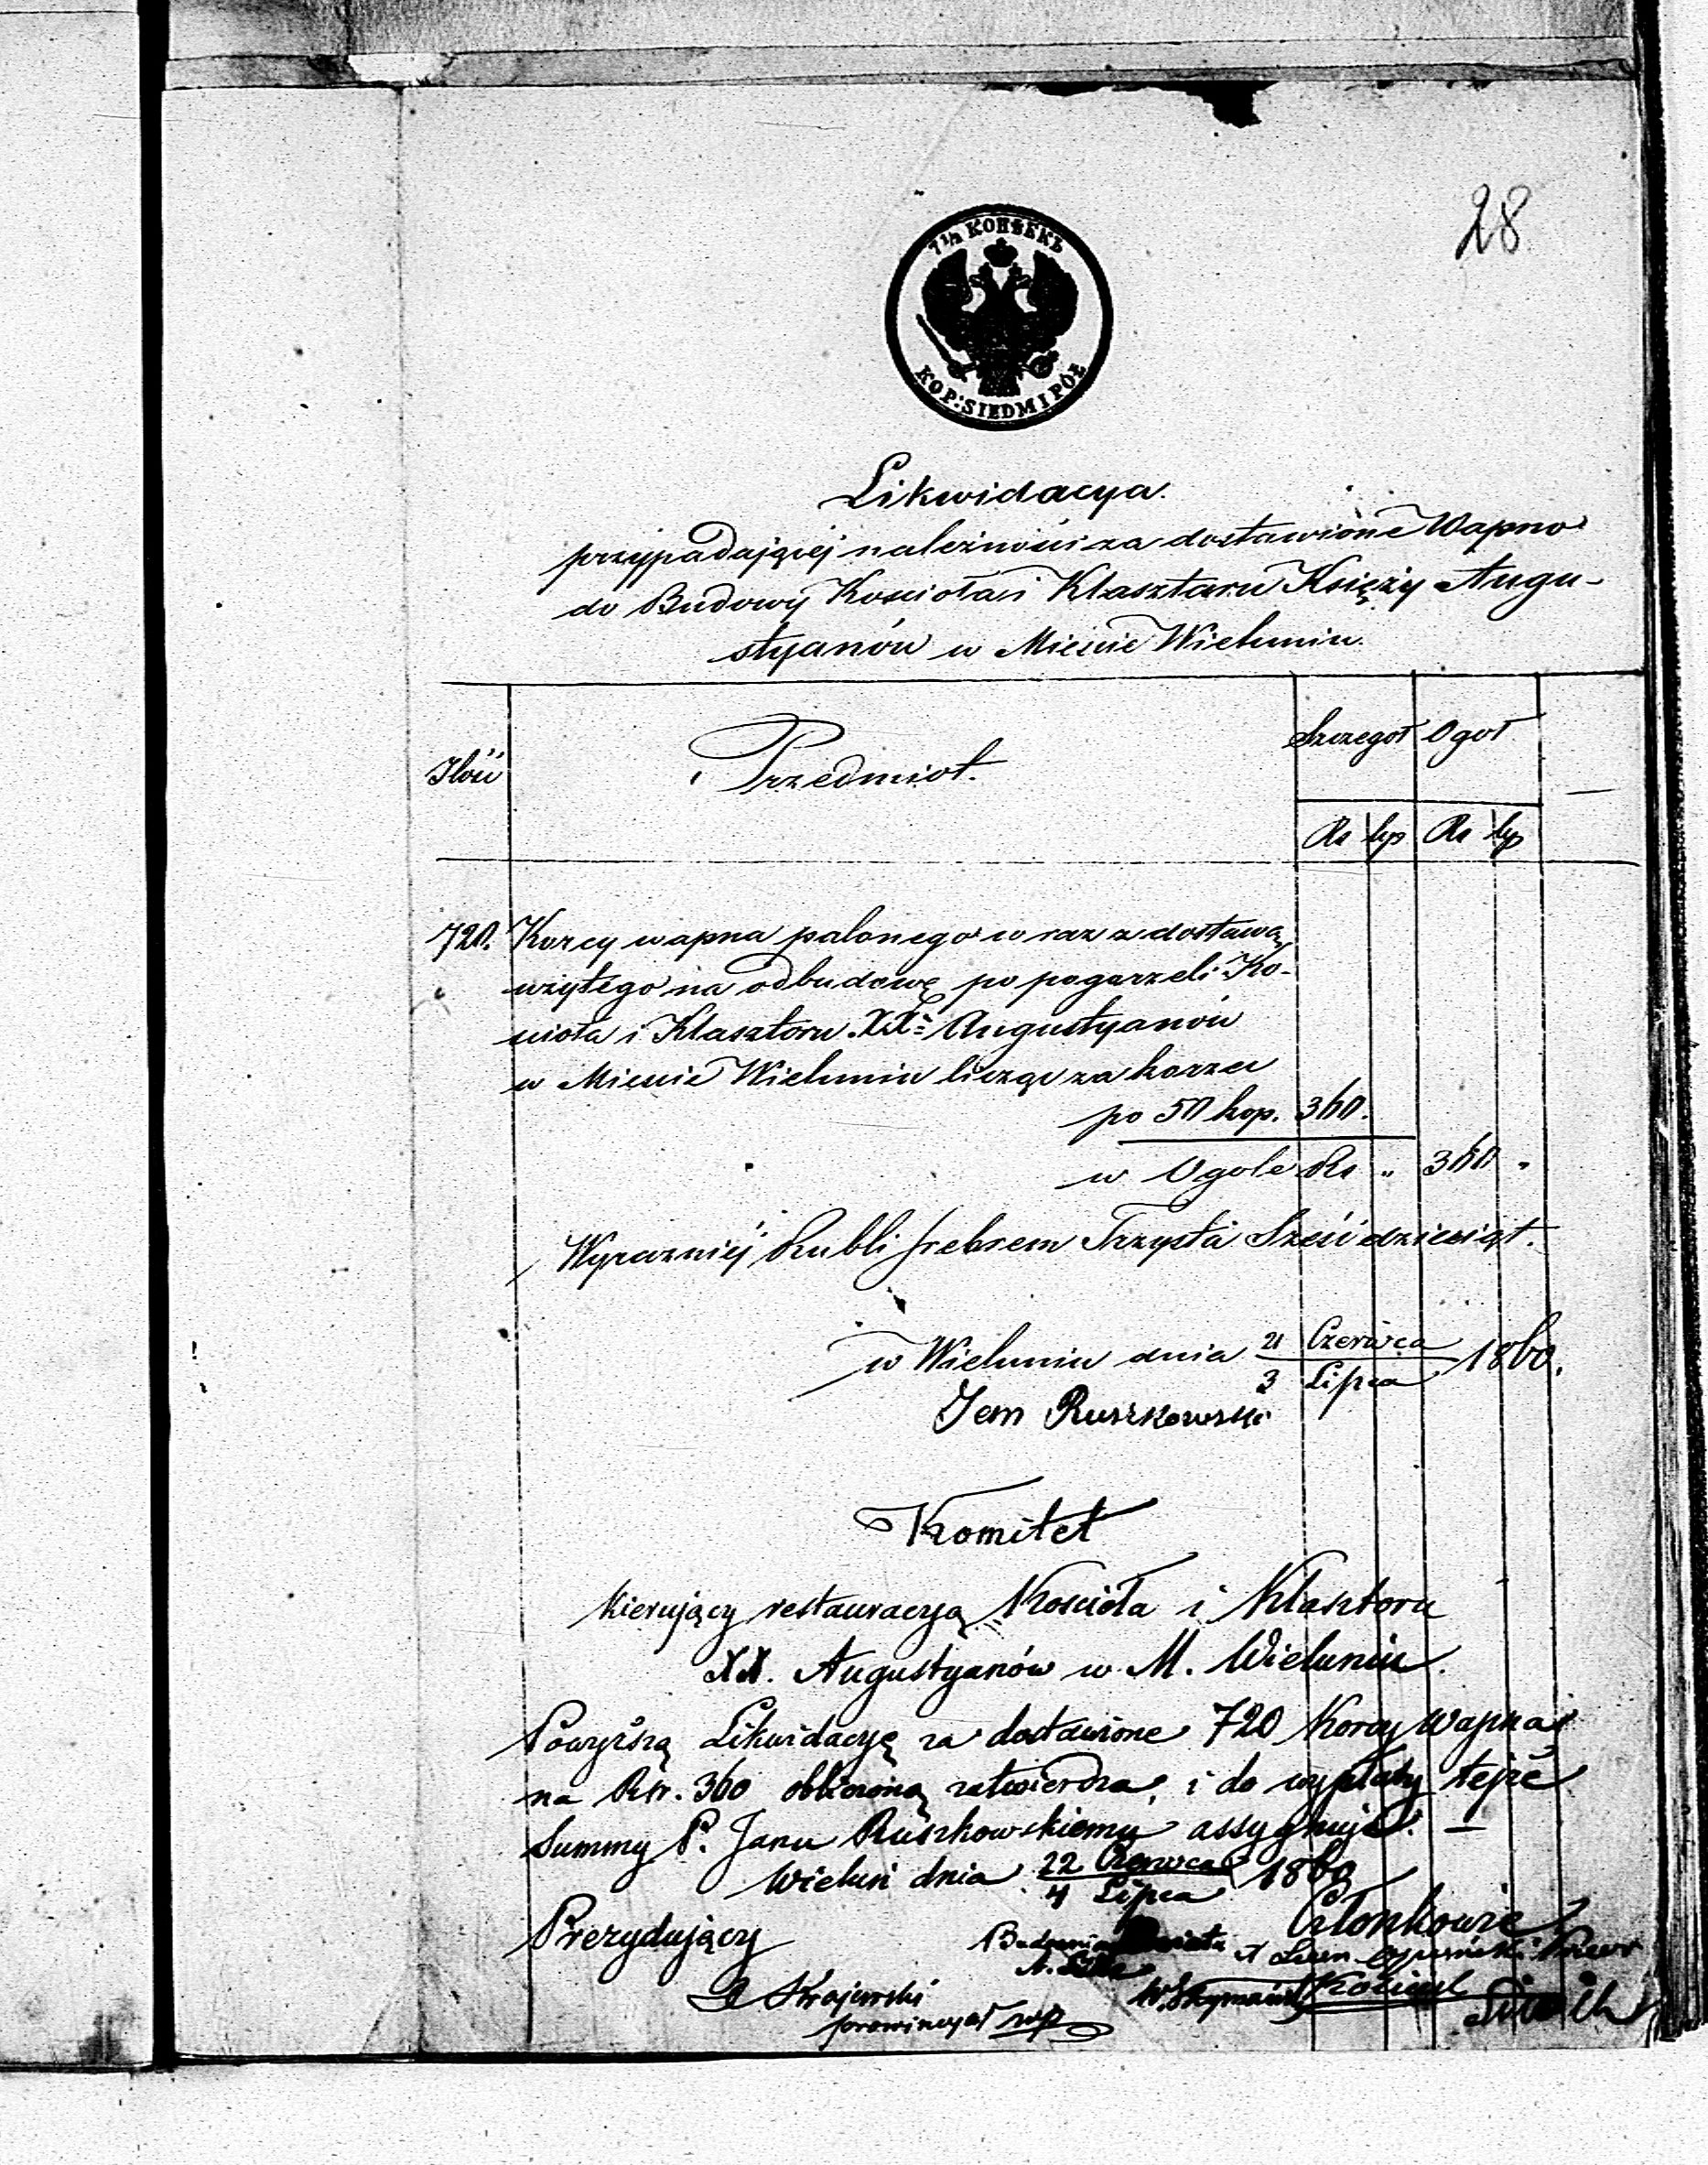 28
7 1/2 КОПѢЕКЪ
KOP: SIEDM I PÓŁ
Likwidacya.
przypadającéj należności za dostawione Wapno
do Budowy Kościoła i Klasztoru Księży Augu-
styanów w Mieście Wieluniu.
Ilość
Przedmiot.
Szczegół Ogół
Rs kp Rs kp
720. Korcy wapna palonego w raz z dostawą
użytego na odbudowę po pogorzeli Ko-
ścioła i Klasztoru XX: Augustyanów
w Mieście Wieluniu licząc za korzec
po 50 kop. 360.
w Ogole Rs „ 360 „
Wyrazniéj Rubli srebrem Trzysta Sześćdziesiąt.
w Wieluniu dnia 21 Czerwca / 3 Lipca 1860.
Jan Ruszkowski
Komitet
Kierujący restauracyą Kościoła i Klasztoru
XX. Augustyanów w M. Wieluniu.
Powyższą Likwidacyę za dostawione 720 Korcy Wapna
na Rsr. 360 obliczoną zatwierdza, i do wypłaty tejże
Summy P. Janu Ruszkowskiemu assygnuje.
Wieluń dnia 22 Czerwca / 4 Lipca 1860
Prezydujący
Członkowie
Krajewski
prowincyał